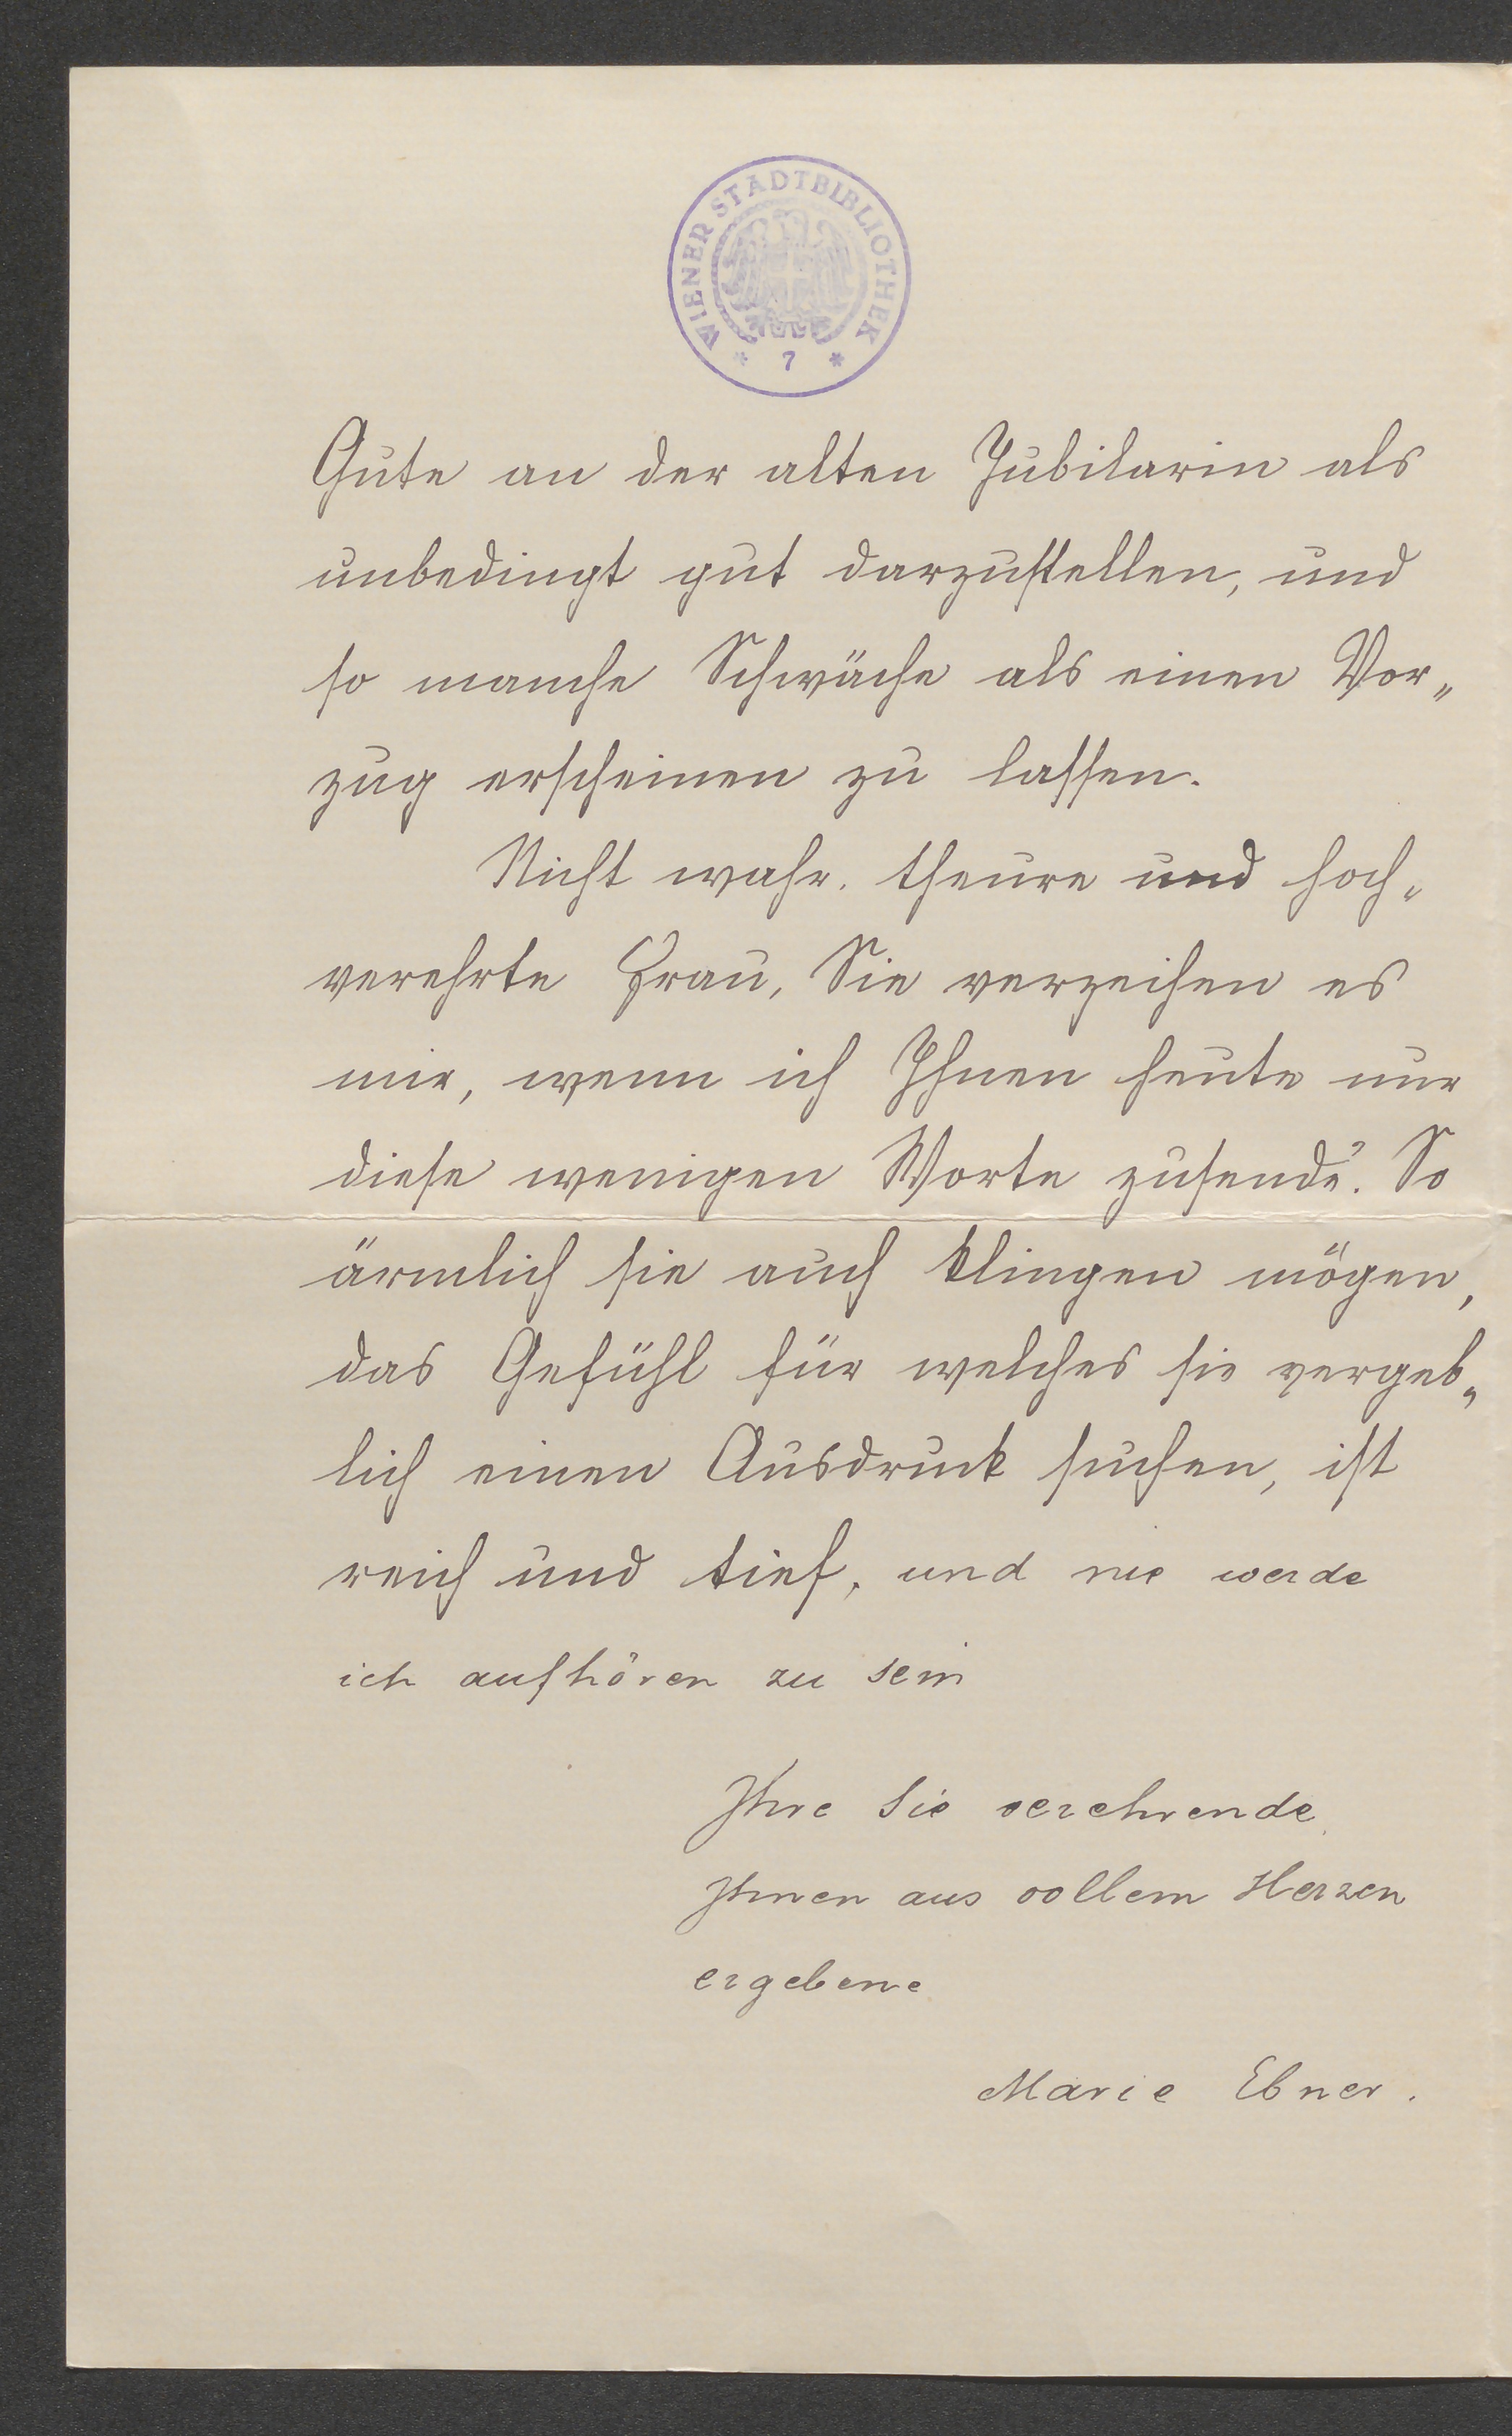 WIENER STADTBIBLIOTHEK
* 7 *
Gute an der alten Jubilarin als
unbedingt gut darzustellen, und
so manche Schwäche als einen Vor„
zug erscheinen zu lassen.
Nicht wahr. theure und hoch„
verehrte Frau, Sie verzeihen es
mir, wenn ich Ihnen heute nur
diese wenigen Worte zusende? So
ärmlich sie auch klingen mögen,
das Gefühl für welches sie vergeb„
lich einen Ausdruck suchen, ist
reich und tief, und nie werde
ich aufhören zu sein
Ihre Sie verehrende
Ihnen aus vollem Herzen
ergebene
Marie Ebner.